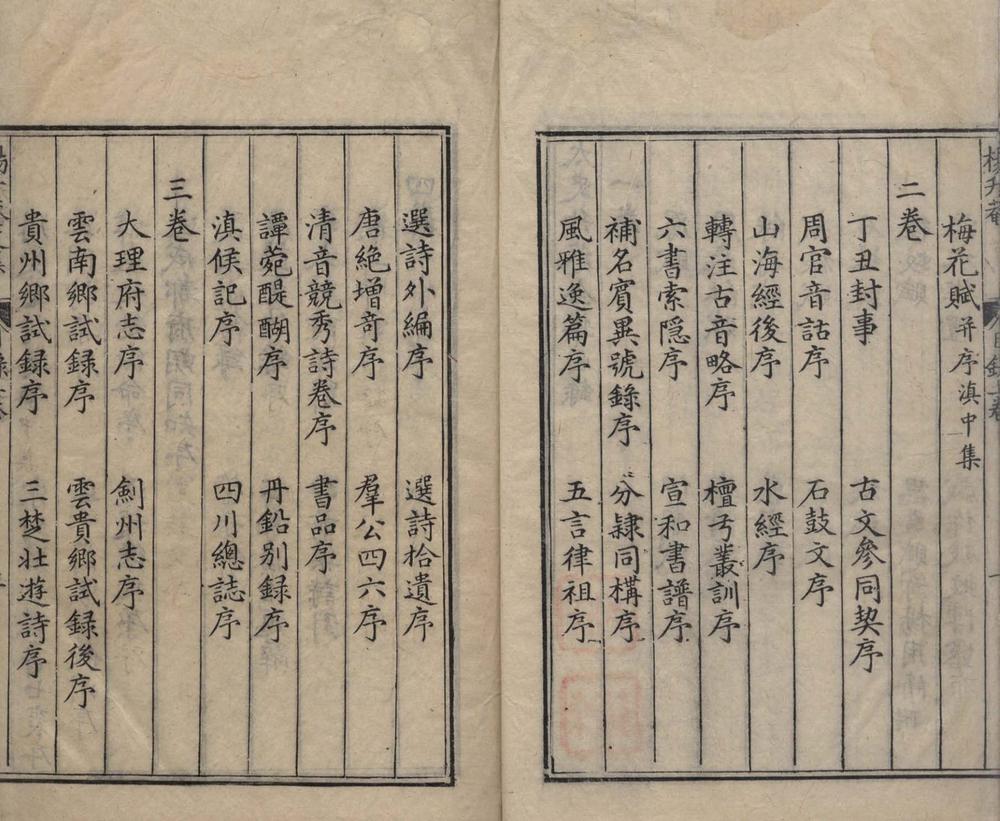 梅花賦 并序滇中集
二卷
丁丑封事 古文參同契序
周官音詁序 石鼓文序
山海經後序 水經序
轉注古音略序 檀弓叢訓序
六書索隱序 宣和書譜序
補名賓異號錄序 分隷同構序
風雅逸篇序 五言律祖序
選詩外編序 選詩拾遺序
唐絶增奇序 羣公四六序
清音競秀詩卷序 書品序
譚菀醍醐序 丹鉛别録序
滇候記序 四川總誌序
三卷
大理府志序 劍州志序
雲南鄉試録序 雲貴鄉試録後序
貴州鄉試録序 三楚壯遊詩序